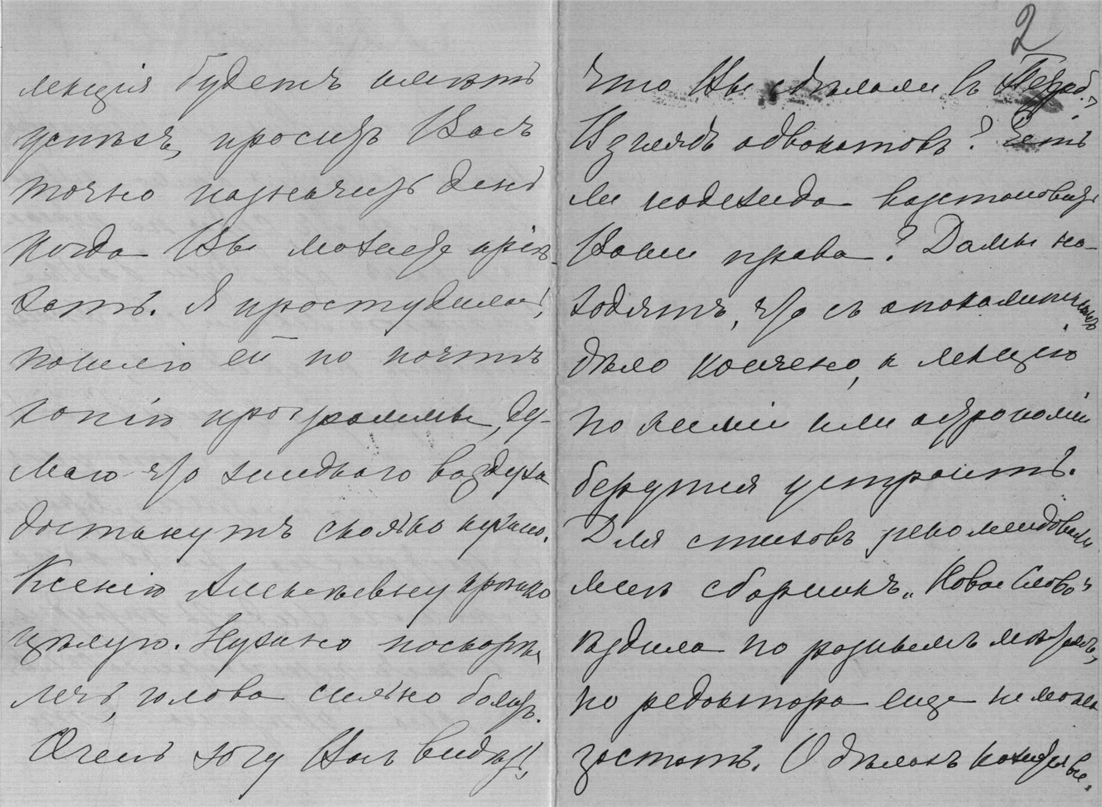 лекція будетъ имѣть
успѣхъ, проситъ Васъ
точно назначить день
когда Вы можете пріѣ-
хать. Я простудилась,
пошлю ей по почтѣ
копію программы, ду-
маю что жидкаго воздуха
достанутъ сколько нужно.
Ксенію Алексѣевну крѣпко
цѣлую. Нужно поскорѣе
лечь, голова сильно болитъ.
Очень хочу Васъ видѣть,
2
что Вы сдѣлали въ
Взглядъ адвокатовъ? Есть
ли надежда возстановить
Ваши права? Дамы на-
ходятъ, что съ апокалипсисомъ
дѣло кончено, а лекцію
по химіи или астрономіи
берутся устроить.
Для стиховъ рекомендовали
мнѣ сборникъ „Новое Слово"
ѣздила по разнымъ мѣстамъ,
но редактора еще не могла
застать. О дѣлахъ напишите,